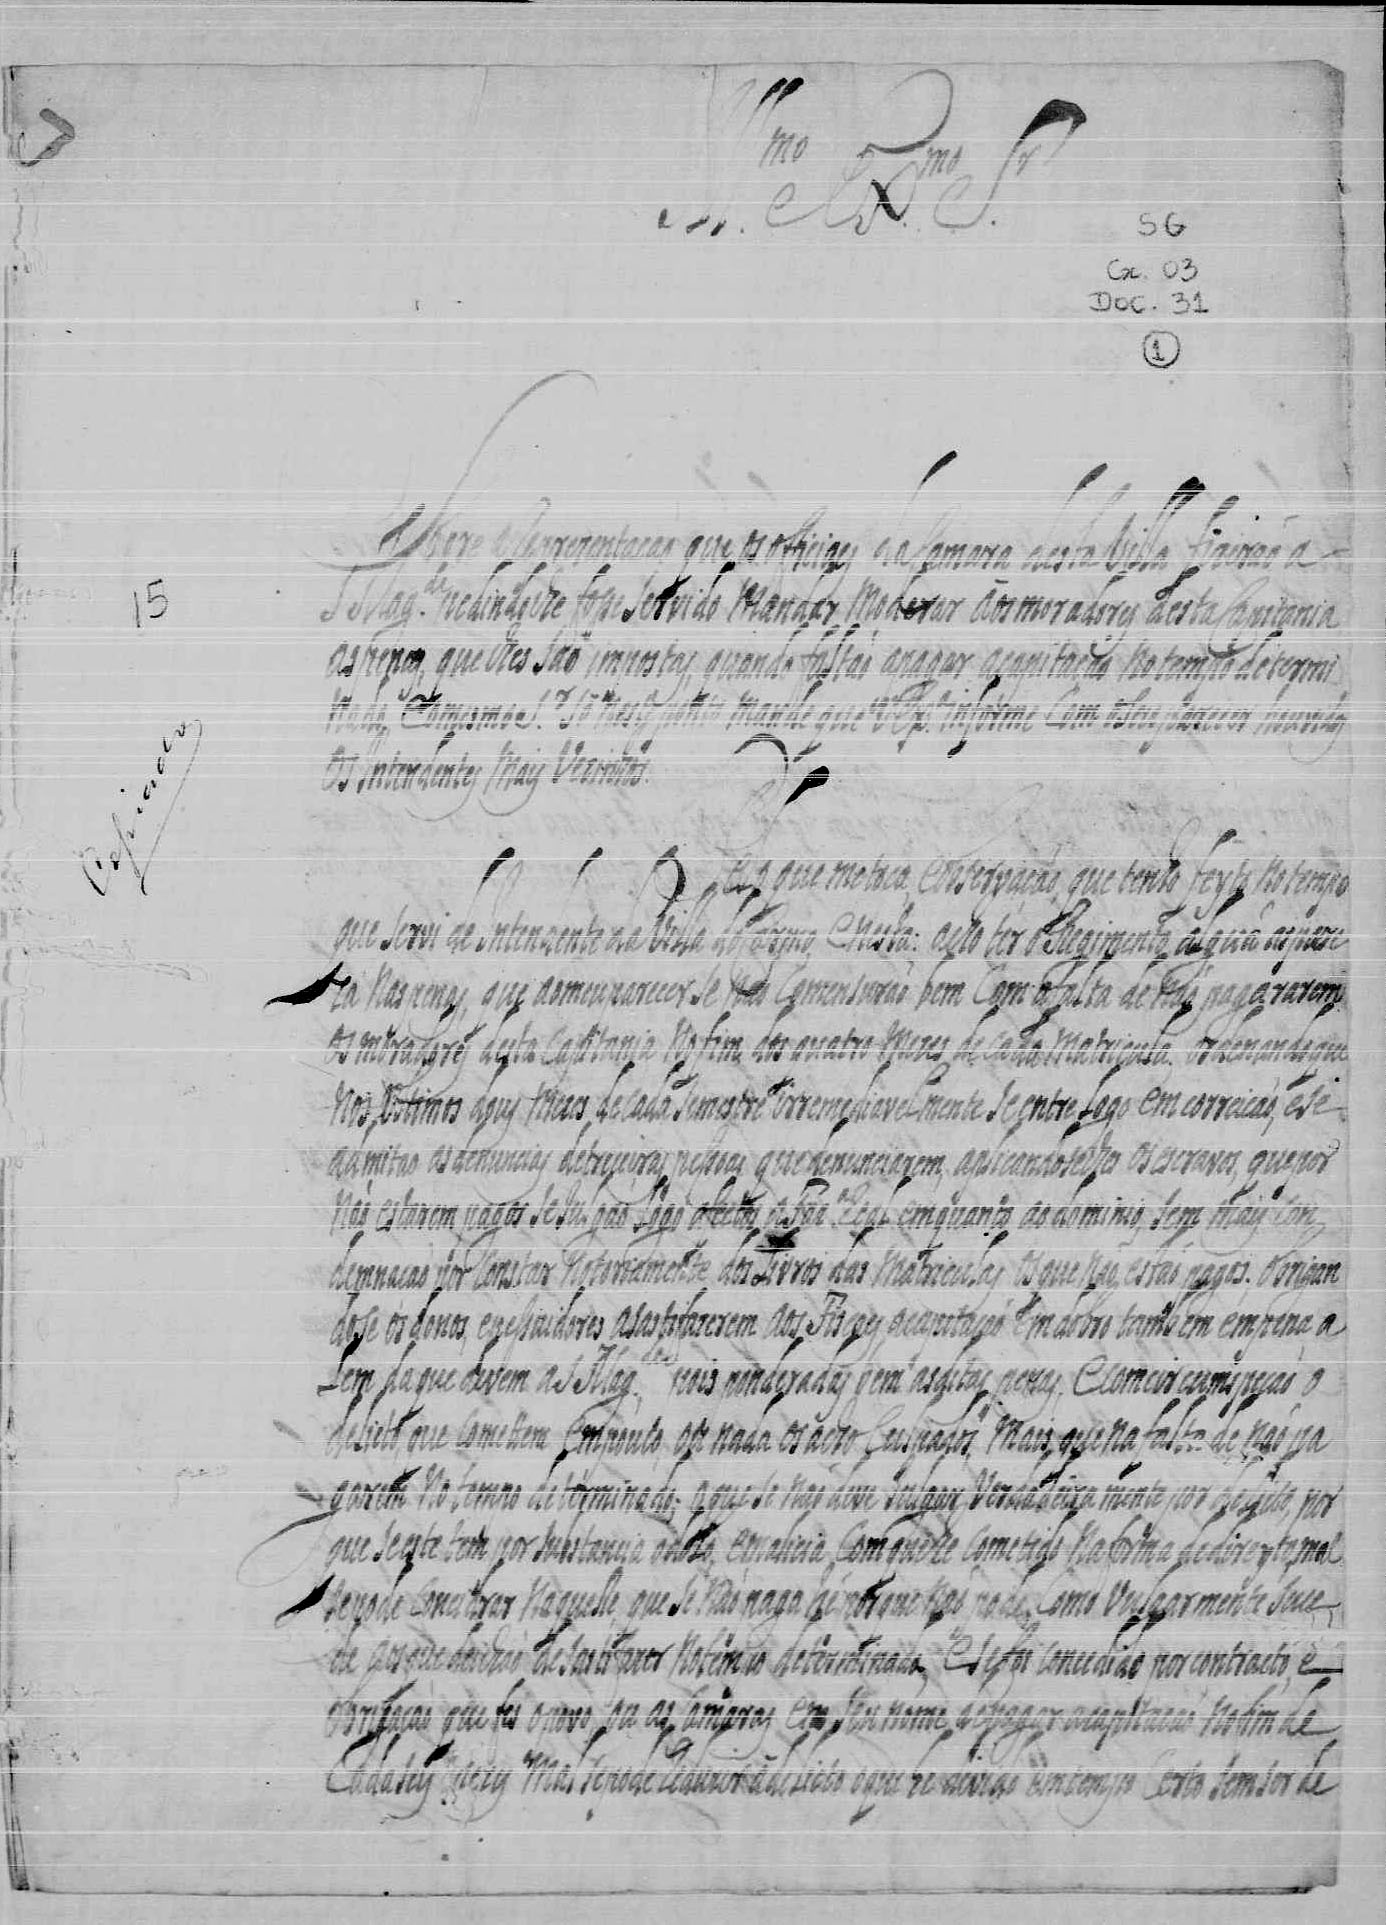 Ill.mo e Ex.mo S.r
SG
Cx. 03
Doc. 31
1
15
Copiado
Sobre a Reprezentação que os officiaes da Camara desta Villa fizerão a
S Mag.de pedindolhe fosse servido Mandar Moderar aos moradores desta Capitania
as penas, que lhes são impostas, quando faltão apagar acapitação no tempo determi
nado, Eomesmo S.r que V Ex.a informe Com oseu parecer houvidos
Os Intendentes Mais Vezinhos.
que me toca, Eobservação, que tenho feyto No tempo
que Servi de Intendente da Villa do Carmo, e Nesta: acho ter o Regimento algũa aspare
za Nas penas, que aomeu parecer se não Comensurão bem Com afalta de não pagararem
Os moradores desta Capitania No fim dos quatro Mezes de Cada Matricula. Ordenando que
Nos Vltimos dous Mezes de Cada Semestre irremediavelmente Se entre Logo em correição, e Se
admitão as denuncias de terceiras pessoas, que denunciarem, aplicandoselhes Os escravos, que por
Não estarem pagos Se Julgão Logo Real emquanto ao dominio, Sem mais Con
demnação por Constar Notoriamente dos Livros das Matriculas Os que Não estão pagos. Obrigan
dose os donos, epessuidores asastisfazerem aos Fiscaes acapitação Em dobro tambem em pena, a
Lem da que devem a S Mag.de pois ponderadas bem as ditas penas, e Com circumspeção o
delicto, que Comettem Emponto, de nada Os acho Culpados, Mais, que na falta de não pa
garem No tempo determinado; o que Se Não deve Julgar Verdadeira mente por delicto, por
que Se este tem por Substancia odolo, emalicia Com que he Cometido Na forma de direyto, mal
Se pode Concidrar Naquelle, que Se Não paga he porque Não pode, Como Vulgarmente Suce
de aos que deixão de Sastisfazer No tempo determinado, E Se foi Concedido por contracto, e
obrigação que fes opovo, ou as Camaras em Seu nome de pagar acapitação No fim de
Cada Seis Mezes Mal Se pode Reduzir a delicto o que he devido em tempo Certo Sem Ser de